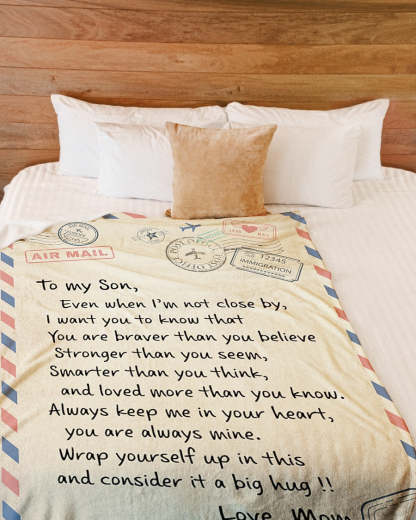 AIR MAIL
12345
IMMIGRATION
To my Son,
Even when I'm not close by,
I want you to know that
You are braver than you believe
Stronger than you seem,
Smarter than you think,
and loved more than you know.
Always keep me in your heart,
you are always mine.
Wrap yourself up in this
and consider it a big hug !!
Love, Mom